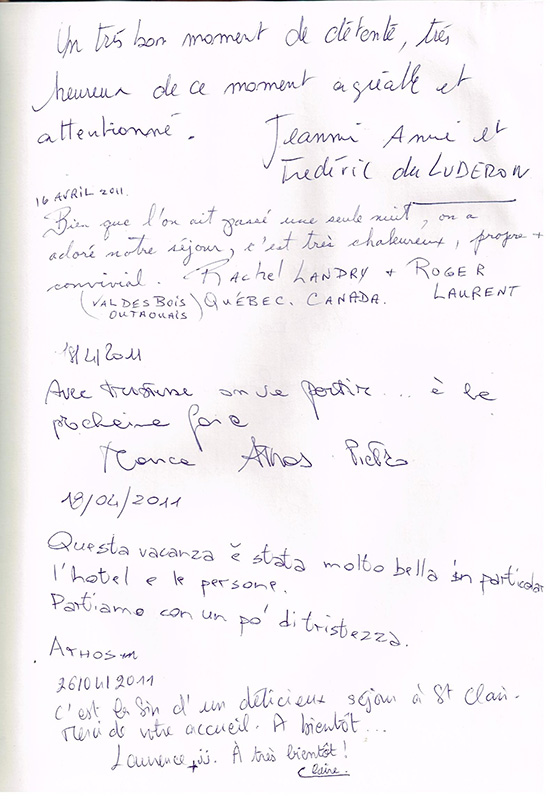 Un très bon moment de détente, très
heureux de ce moment agréable et
attentionné.
Jeanmi Anne et
Frédéric du LUBERON
16 AVRIL 2011.
Bien que l'on ait passé une seule nuit, on a
adoré notre séjour, c'est très chaleureux, propre +
convivial. RACHEL LANDRY + ROGER LAURENT
(VAL DES BOIS OUTAOUAIS) QUÉBEC. CANADA.
18/4/2011
Avec tristesse on va partir... à la
procheine fois
Athos
18/04/2011
Questa vacanza è stata molto bella in particolar
l'hotel e le persone.
Partiamo con un po' di tristezza.
ATHOS
26/04/2011
C'est la fin d'un délicieux séjour à St Clair.
Merci de votre accueil. A bientôt...
Laurence. À très bientôt!
Claire.